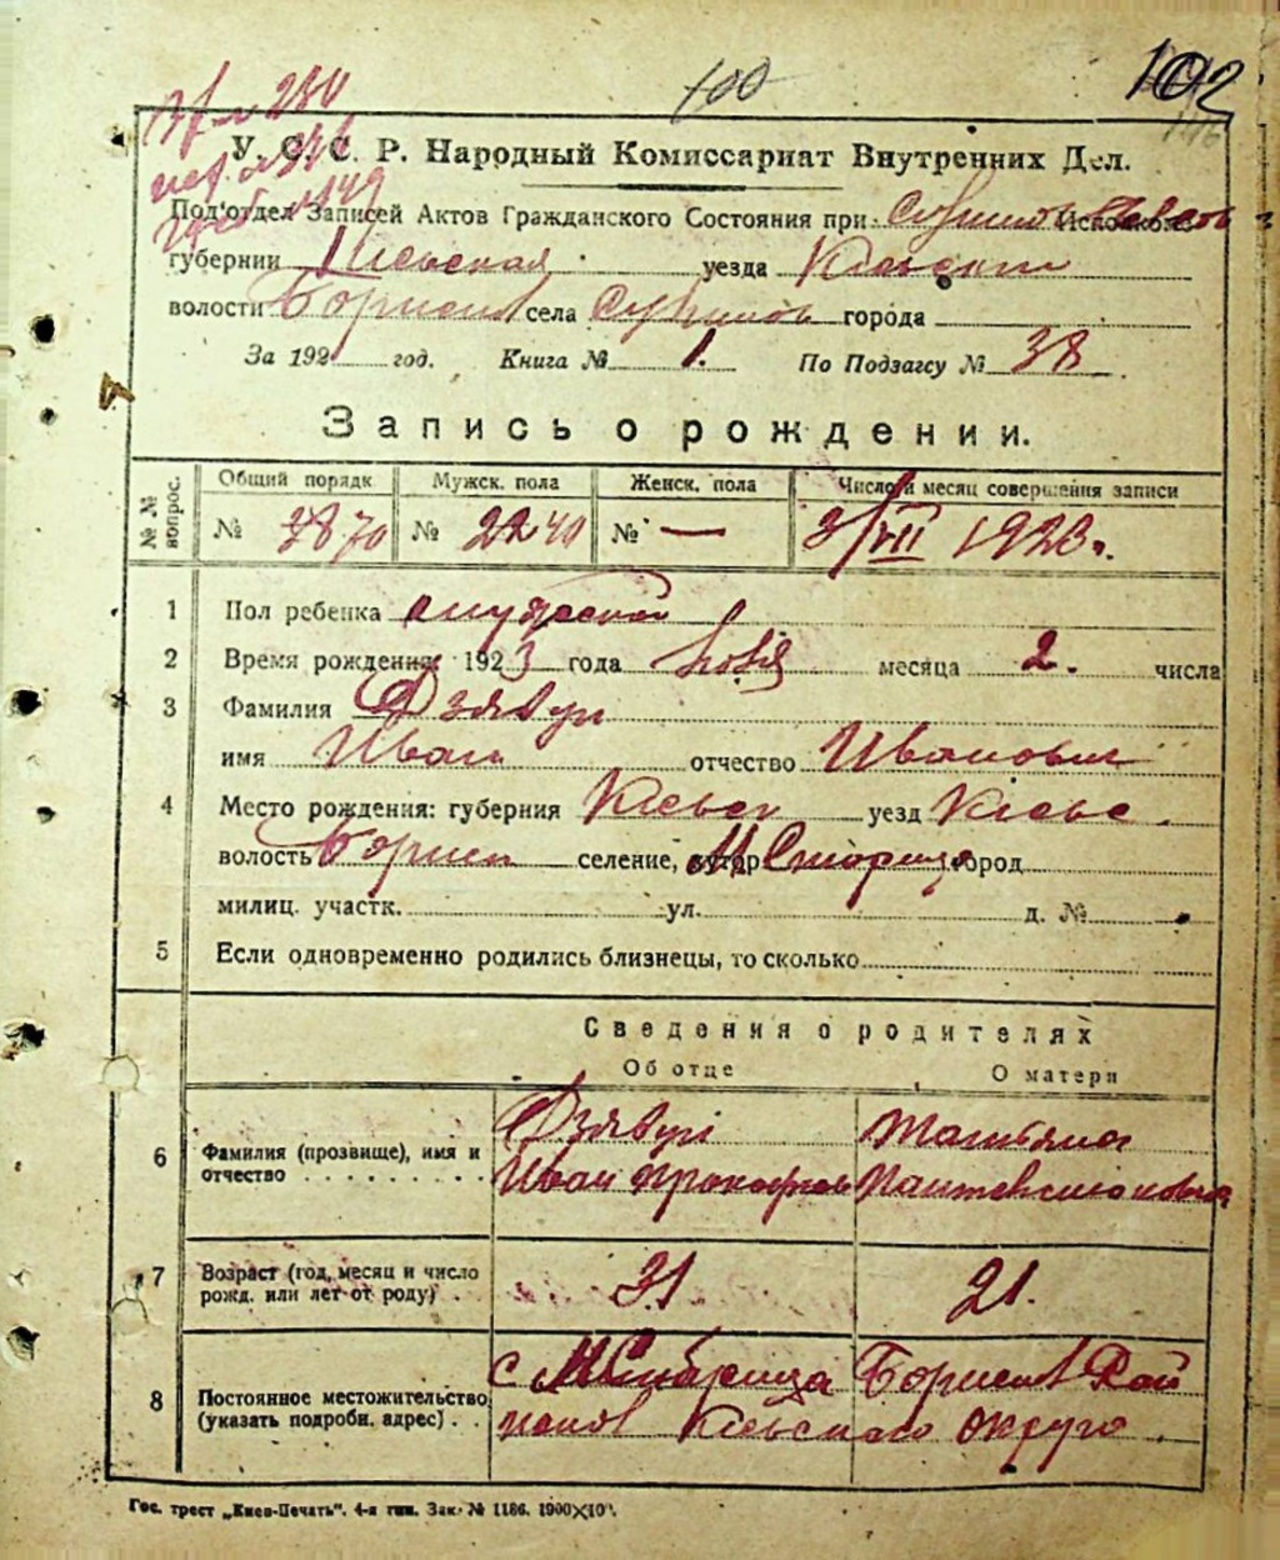 100
102
У. С. С. Р. Народный Комиссариат Внутренних Дел.
Под'отдел Записей Актов Гражданского Состояния при Исполкоме
губернии Киевская уезда Киевский
волости села города
За 192 год. Книга № 1. По Подзагсу № 38
Запись о рождении.
№ № вопрос.
Общий порядк Мужск. пола Женск. пола Число и месяц совершения записи
№ 38 70 № 22 40 № — 3/VII 1923 г.
1 Пол ребенка мужеской
2 Время рождения: 1923 года месяца 2. числа
3 Фамилия Дзявул
имя Иван отчество Иванович
4 Место рождения: губерния Киевск уезд Киевс.
волость Борисп селение, хутор город
милиц. участк. ул. д. №
5 Если одновременно родились близнецы, то сколько
Сведения о родителях
Об отце О матери
6 Фамилия (прозвище), имя и отчество Дзявул Татьяна
Иван Прокофьев
7 Возраст (год, месяц и число рожд. или лет от роду) 31. 21.
8 Постоянное местожительство (указать подробн. адрес) с Бориспол Рай
Киевского округа.
Гос. трест „Киев-Печать“. 4-я тип. Зак. № 1186. 1900×10